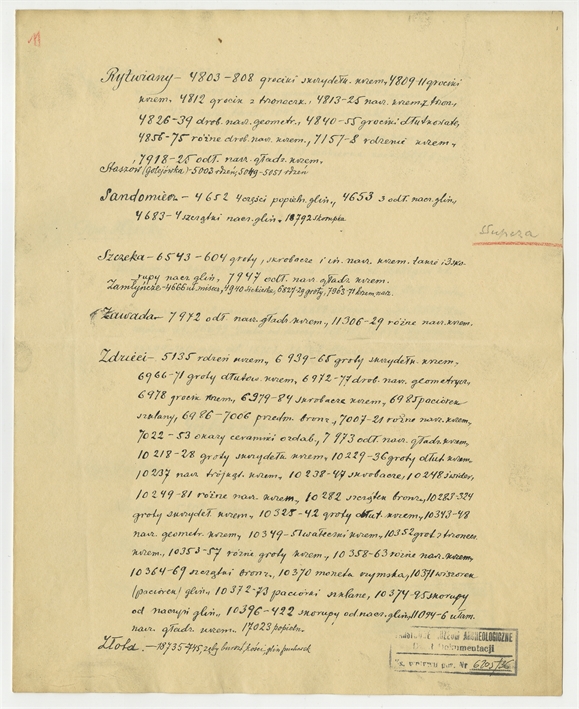 Rytwiany – 4803–808 grociki skrzydełk. krzem., 4809–11 grociki
krzem. 4812 grocik z trzoneczk., 4813–25 narz. krzem. z trzon.,
4826–39 drob. narz. geometr., 4840–55 grociki dłutkowate,
4856–75 różne drob. narz. krzem., 7157–8 rdzenie krzem.,
7918–25 odł. narz. gładz. krzem.
Staszów (Golejówka) – 5003 rdzeń, 5049–5051 rdzeń
Sandomierz – 4652 części popieln. glin., 4653 3 odł. nacz. glin.,
4683–4 szczątki nacz. glin. 18792 skorupka
Słupcza
Szczeka – 6543–604 groty, skrobacze i in. narz. krzem. tamże i sko-
rupy nacz. glin., 7947 odł. narz. gładz. krzem.
4940 siekierka, 6827–29 groty, 7963–71 krzem. narz.
Zawada – 7972 odł. narz. gładz. krzem., 11306–29 różne narz. krzem.
Zdzieci – 5135 rdzeń krzem., 6939–65 groty skrzydełk. krzem.
6966–71 groty dłutow. krzem., 6972–77 drob. narz. geometrycz.,
6978 grocik krzem., 6979–84 skrobacze krzem., 6985 paciorek
szklany, 6986–7006 przedm. bronz., 7007–21 różne narz. krzem.,
7022–53 okazy ceramiki ozdob., 7973 odł. narz. gładz. krzem.,
10218–28 groty skrzydełk. krzem., 10229–36 groty dłut. krzem.
10237 narz. trójkąt. krzem., 10238–47 skrobacze, 10248 świder,
10249–81 różne narz. krzem., 10282 szczątek bronz., 10283–324
groty skrzydeł. krzem. 10325–42 groty dłut. krzem., 10343–48
narz. geometr. krzem., 10349–51 wałeczki krzem., 10352 grot z trzonecz.
krzem., 10353–57 różne groty krzem., 10358–63 różne narz. krzem.,
10364–69 szczątki bronz., 10370 moneta rzymska, 10371 wisiorek
(paciorek) glin., 10372–73 paciorki szklane, 10374–95 skorupy
od naczyń glin., 10396–422 skorupy od nacz. glin., 11094–6 ułam.
narz. gładz. krzem. 17023 popieln.
Złota – 18735–745, zęby bursz., kości, glin.
PAŃSTWOWE MUZEUM ARCHEOLOGICZNE
Dział Dokumentacji
Ks. wpływu poz. Nr 6205/36